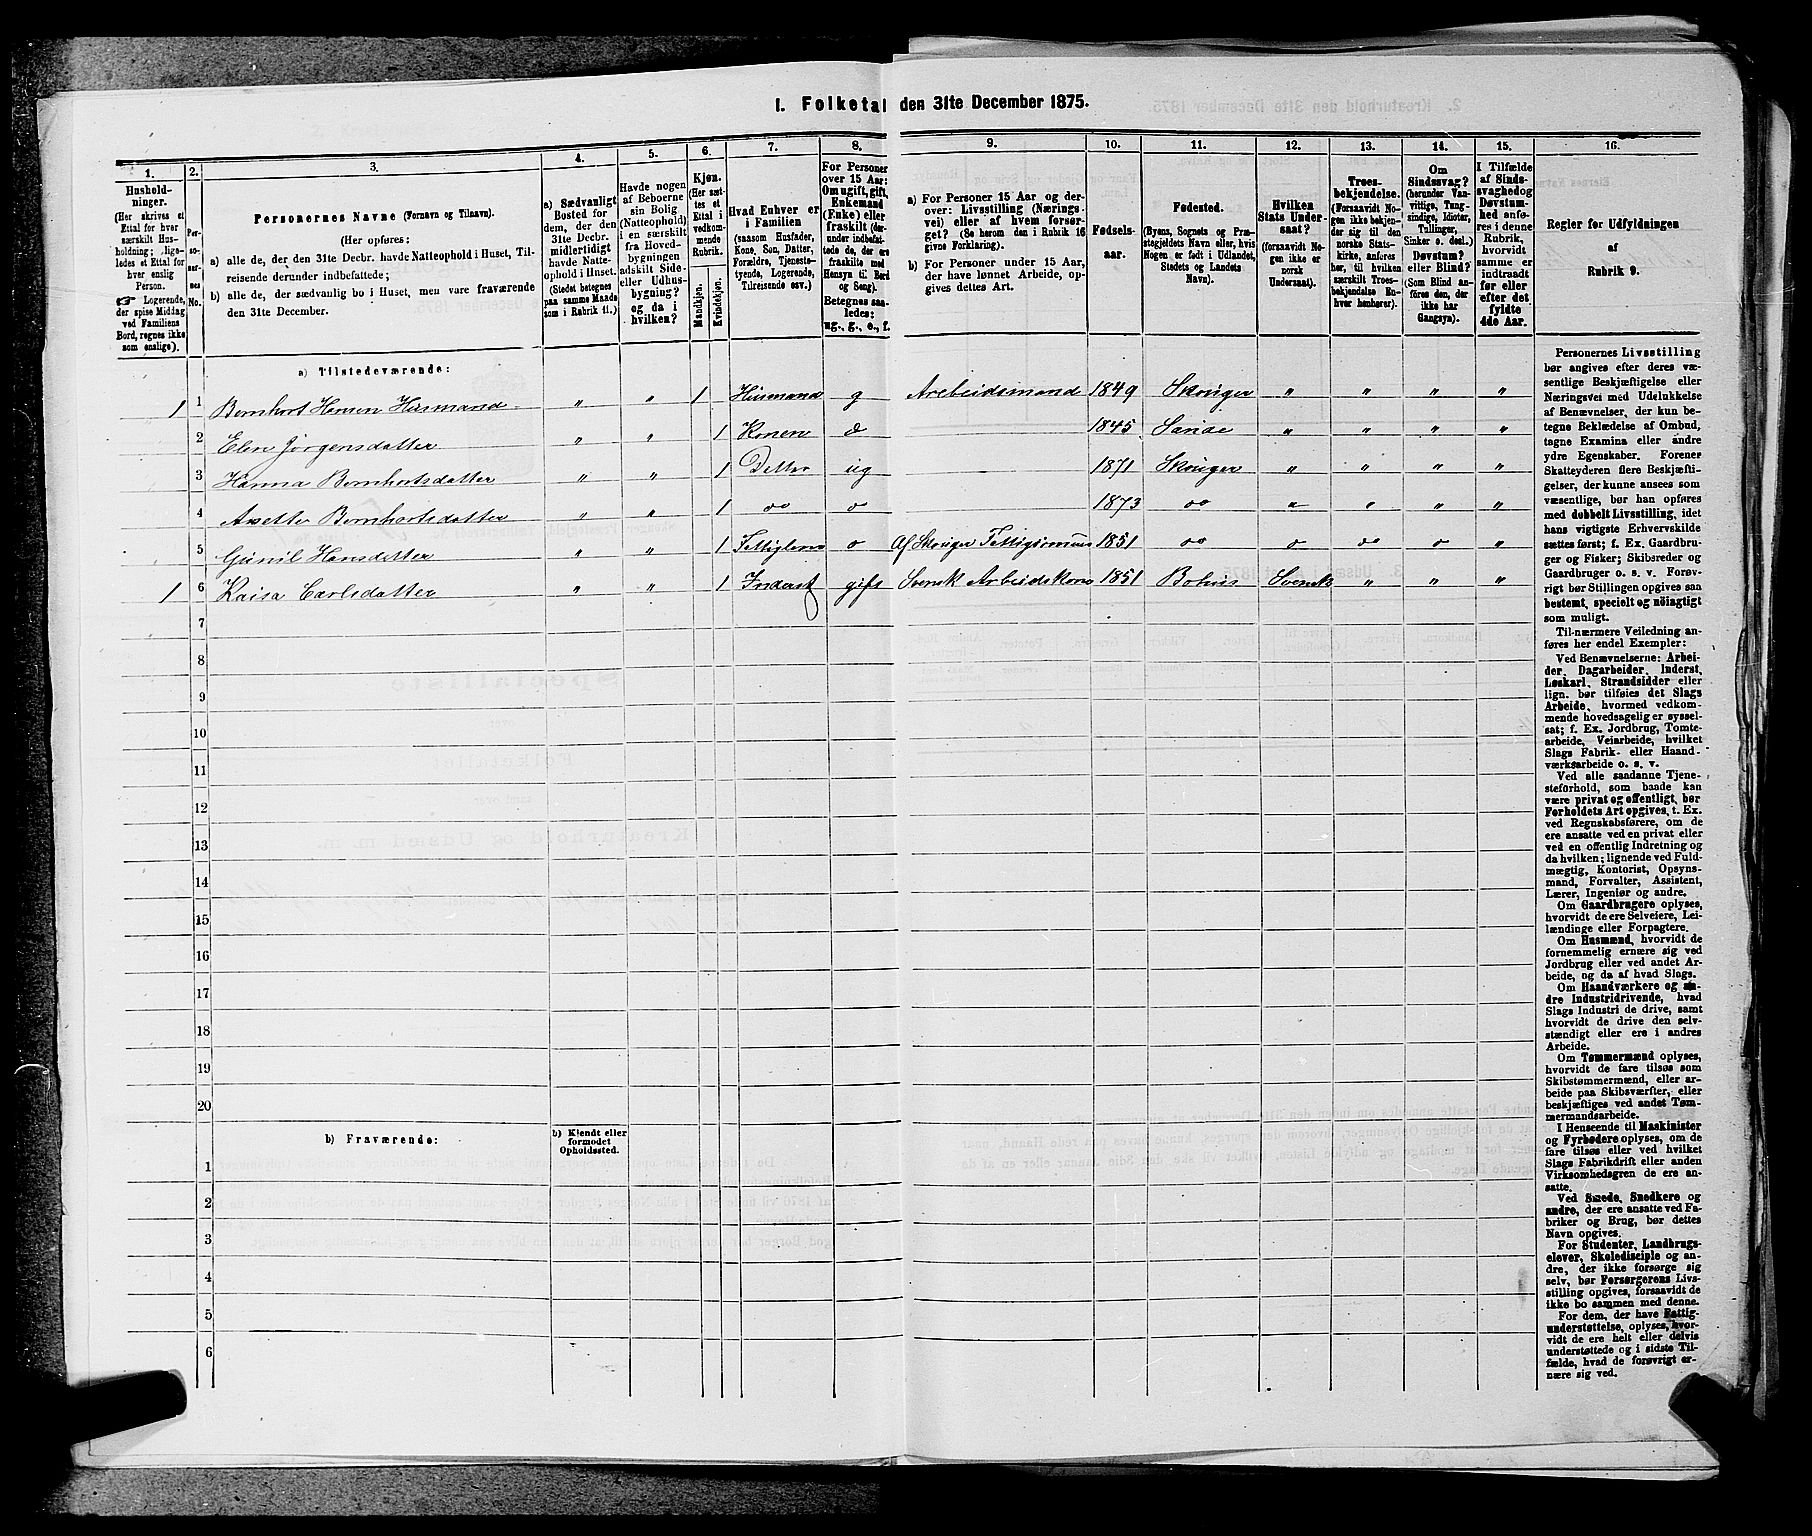 I. Folketal den 31te December 1875.
1. 2. 3. 4. 5. 6. 7. 8. 9. 10. 11. 12. 13. 14. 15. 16.
Husholdninger.
(Her skrives et
Ettal for hver
særskilt Husholdning; ligeledes et Ettal for
hver enslig
Person.
☞ Logerende,
der spise Middag
ved Familiens
Bord, regnes ikke
som enslige).
Personernes No.
Personernes Navne (Fornavn og Tilnavn).
(Her opføres:
a) alle de, der den 31te Decbr. havde Natteophold i Huset, Tilreisende derunder indbefattede;
b) alle de, der sædvanlig bo i Huset, men vare fraværende
den 31te December.
a) Sædvanligt
Bosted for
dem, der den
31te Decbr.
midlertidigt
havde Natteophold i Huset.
(Stedet betegnes
paa samme Maade
som i Rubrik 11.)
Havde nogen
af Beboerne
sin Bolig
(Natteophold)
i en særskilt
fra Hovedbygningen
adskilt Side-
eller Udhusbygning?
og da i
hvilken?
Kjøn.
(Her sættes et
Ettal i
vedkommende
Rubrik.
Mandkjøn.
Kvindekjøn.
Hvad Enhver er
i Familien
(saasom Husfader,
Kone, Søn, Datter,
Forældre, Tjenestetyende, Logerende,
Tilreisende osv.)
For Personer
over 15 Aar:
Om ugift, gift,
Enkemand
(Enke) eller
fraskilt (derunder indbefattede de, der ere
fraskilte med
Hensyn til Bord
og Seng).
Betegnes saaledes:
ug., g., e., f.
a) For Personer 15 Aar og derover: Livsstilling (Næringsvei) eller af hvem forsørget? (Se herom den i Rubrik 16
givne Forklaring).
b) For Personer under 15 Aar,
der have lønnet Arbeide, opgives dettes Art.
Fødselsaar.
Fødested.
(Byens, Sognets og Præstegjeldets Navn eller, hvis
Nogen er født i Udlandet,
Stedets og Landets
Navn).
Hvilken
Stats Undersaat?
(forsaavidt Nogen ikke er
norsk
Undersaat).
Troesbekjendelse.
(Forsaavidt Nogen ikke bekjender sig til den
norske Statskirke, anføres
her, til hvilken
særskilt Troesbekjendelse Enhver henhører).
Om
Sindssvag?
(herunder Vanvittige, Tungsindige, Idioter,
Tullinger,
Sinker o. desl.)
Døvstum?
eller Blind?
(Som Blind anføres den, der
ikke har
Gangsyn).
I Tilfælde
af Sindssvaghed og
Døvstumhed anføres i denne
Rubrik,
hvorvidt
samme er
indtraadt
før eller
efter det
fyldte
4de Aar.
Regler for Udfyldningen
af
Rubrik 9.
a) Tilstedeværende:
1 1 Bernhart Hansen Husmand " " 1 Husmand g Arebeidsmand 1849 Skouger " " " "
2 Elen Jørgensdatter " " 1 Konen o 1845 Sande " " " "
3 Hanna Bernhartsdatter " " 1 Detter ug 1871 Skouger " " " "
4 Anette Bernhartsdatter " " 1 oo o 1873 oo " " " "
5 Gunil Hansdatter " " 1 o Af Skouger 1851 oo o oo o "
1 6 Kaisa Carlsdatter " " 1 Inderst gift Svensk Arbeidskone 1851 Bohus Svensk " " "
7
8
9
10
11
12
13
14
15
16
17
18
19
20
b) Fraværende:
b) Kjendt eller
formodet
Opholdssted.
1
2
3
4
5
6
Personernes Livsstilling
bør angives efter deres væsentlige Beskjæftigelse eller
Næringsvei med Udelukkelse
af Benævnelser, der kun betegne Beklædelse af Ombud,
tagne Examina eller andre
ydre Egenskaber. Forener
Skatteyderen flere Beskjæftigelser, der kunne ansees som
væsentlige, bør han opføres
med dobbelt Livsstilling, idet
hans vigtigste Erhvervskilde
sættes først; f. Ex. Gaardbruger og Fisker; Skibsreder og
Gaardbruger o. s. v. Forøvrigt bør Stillingen opgives saa
bestemt, specielt og nøiagtigt
som muligt.
Til nærmere Veiledning anføres her endel Exempler:
Ved Benævnelserne: Arbeider, Dagarbeider, Inderst,
Løskarl, Strandsidder eller
lign. bør tilføies det Slags
Arbeide, hvormed vedkommende hovedsagelig er sysselsat; f. Ex. Jordbrug, Tomtearbeide, Veiarbeide, hvilket
Slags Fabrik- eller Haandværksarbeide o. s. v.
Ved alle saadanne Tjenesteforhold, som baade kan
være privat og offentligt, bør
Forholdets Art opgives, t. Ex.
ved Regnskabsførere, om de
ere ansatte ved en privat eller
ved en offentlig Indretning og
da hvilken; lignende ved Fuldmægtig, Kontorist, Opsynsmand, Forvalter, Assistent,
Lærer, Ingeniør og andre.
Om Gaardbrugere oplyses,
hvorvidt de ere Selveiere, Leilændinge eller Forpagtere.
Om Husmænd, hvorvidt de
fornemmelig ernære sig ved
Jordbrug eller ved andet Arbeide, og da af hvad Slags.
Om Haandværkere og andre Industridrivende, hvad
Slags Industri de drive, samt
hvorvidt de drive den selvstændigt eller ere i andres
Arbeide.
Om Tømmermænd oplyses,
hvorvidt de fare tilsøs som
Skibstømmermænd, eller arbeide paa Skibsværfter, eller
beskjæftiges ved andet Tømmermandsarbeide.
I Henseende til Maskinister
og Fyrbødere oplyses, om de
fare tilsøs eller ved hvilket
Slags Fabrikdrift eller anden
Virksomhedsgren de ere ansatte.
Ved Smede, Snedkere og
andre, der ere ansatte ved Fabriker og Brug, bør dettes
Navn opgives.
For Studenter, Landbrugselever, Skoledisciple og andre, der ikke forsørge sig
selv, bør Forsørgerens Livsstilling opgives, forsaavidt de
ikke bo sammen med denne.
For dem, der have Fattigunderstøttelse, oplyses, hvorvidt de ere helt eller delvis
understøttede og i sidste Tilfælde, hvad de forøvrigt ernære sig ved.